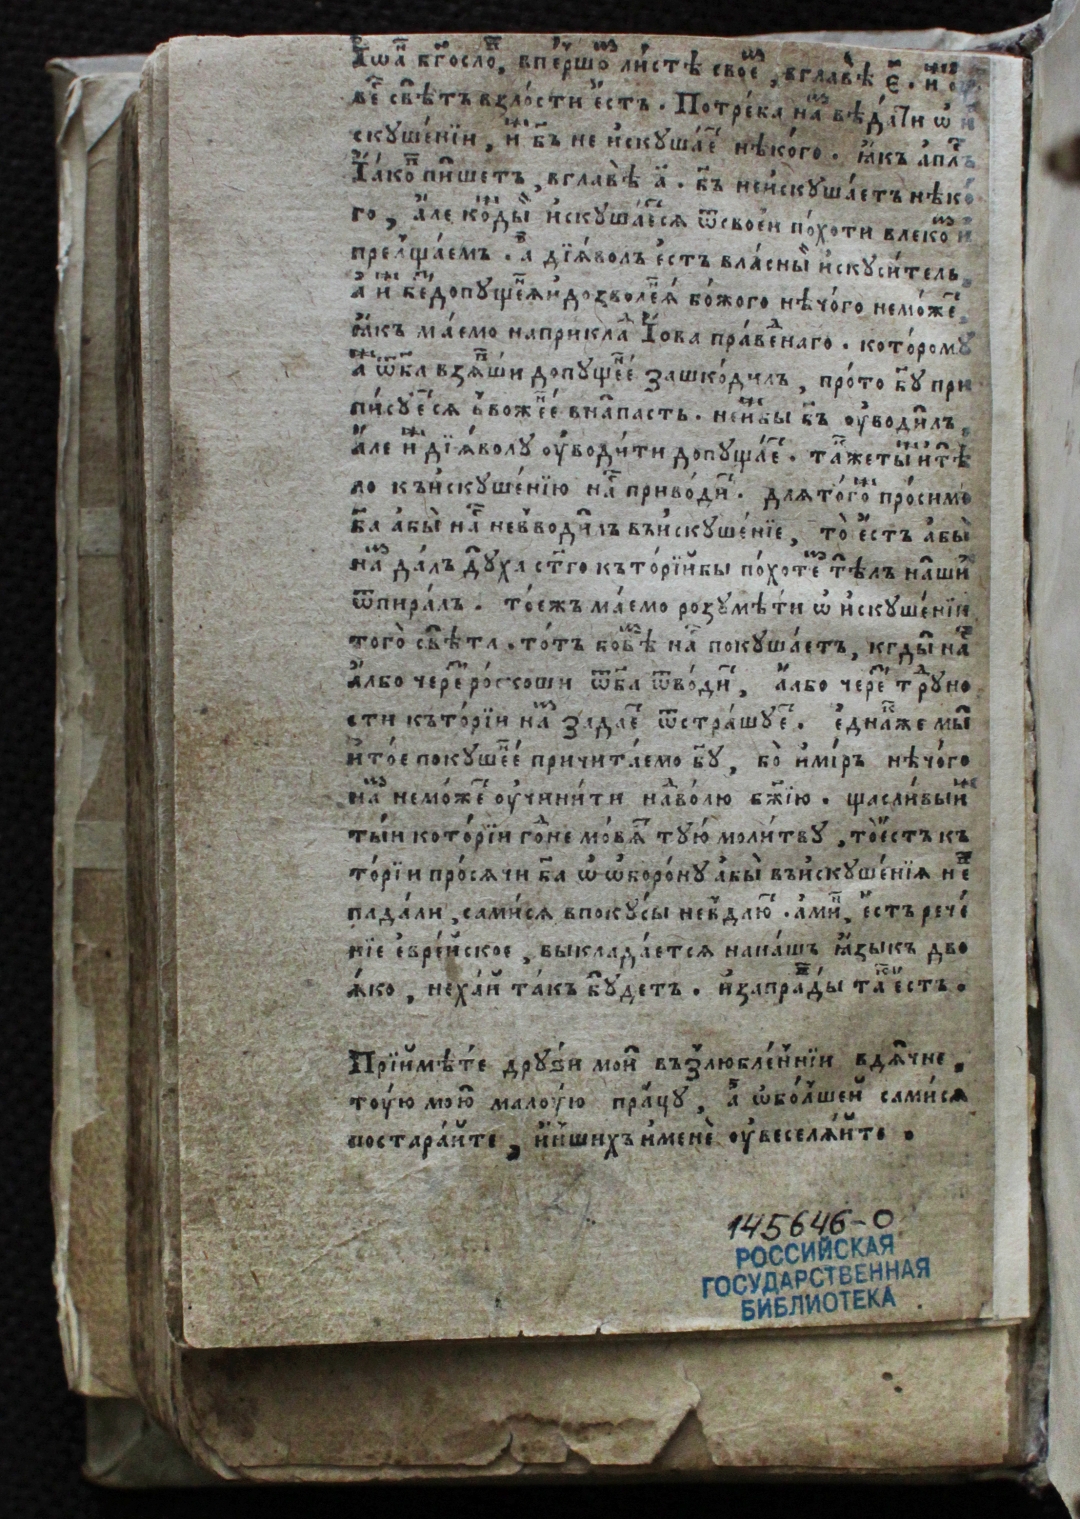 Їѡа́ бг҃осло, впершо ли́стѣ своє, вглавѣ є҃. и
ве свѣтъ взло́сти є҆стъ. Потре́ка на вѣда́ти ѡ
скуше́нїи, и҆ бъ҃ не и҆скуша́є нѣко́го. ꙗкъ апл҃ъ
І҆а́ко пи́шетъ, вглавѣ а҃. бъ҃ неи҆скуша́етъ нѣко́
го, а҆ле ко́ды и҆скуша́єся ѿсвоеи по́хоти влеко и҆
прелща́емъ. а҆ дїа́волъ є҆стъ вла́сны и҆скуси́тель,
а҆ и бе допущеꙗ и дозволеꙗ бо́жого нѣчо́го немо́же,
ꙗкъ ма́емо наприкла І҆ова пра́венаго. кото́рому
а҆ ѿба взѧши допуще́е зашко́дилъ, про́то бу҃ при
пи́суєся ввоже́е внапасть. неибы бъ҃ оуводилъ,
а҆ле и дїа́волу оуводи́ти допуща́є. та́жеты и тѣ
ло къи҆скуше́нїю на приво́ди. длѧто́го про́симо
ба҃ абы̀ на невводилъ въи҆скуше́нїе, то̀ є҆стъ абы̀
на да́лъ Духа ст҃го къто́рїйбы по́хоте тѣлъ наши
ѿпира́лъ. то́ежъ ма́емо розумѣ́ти ѡ и҆скуше́нїи
того̀ свѣ́та. то́тъ бовѣ на покуша́етъ, кгды на
а҆лбо чере ро́скоши ѿба ѿво́ди, а҆лбо чере труно
сти къто́рїи на задає ѿстра́шує. є҆дна́же мы
и҆то́е покуше́е причита́емо бу҃, бо̀ и҆мі́ръ нѣчо́го
на немо́же оучини́ти наво́лю бж҃їю. щасли́выи
ты́и кото́рїи го́не мо́вѧ тую́ моли́тву, то̀є҆стъ къ
то́рїи про́сячи ба҃ ѡ ѡборо́ну абы̀ въи҆скуше́нїя не
пада́ли, сами́ся впоку́сы невдаю. ами, є҆стъ рече́
нїе є҆вре́йское, выклада́ется нана́шъ ꙗзыкъ дво
ꙗ́ко, неха́й та́къ будетъ. и҆запра́ды та є҆стъ.
Прїймѣ́те дру́зи мои възлюбле́ннїи вдя́чне,
тоу́ю мою малоу́ю пра́цу, а҆ ѡбо́лшей сами́ся
постара́йте, и҆ншихъ и҆менѐ оувеселя́йте.
145646-0
РОССИЙСКАЯ
ГОСУДАРСТВЕННАЯ
БИБЛИОТЕКА